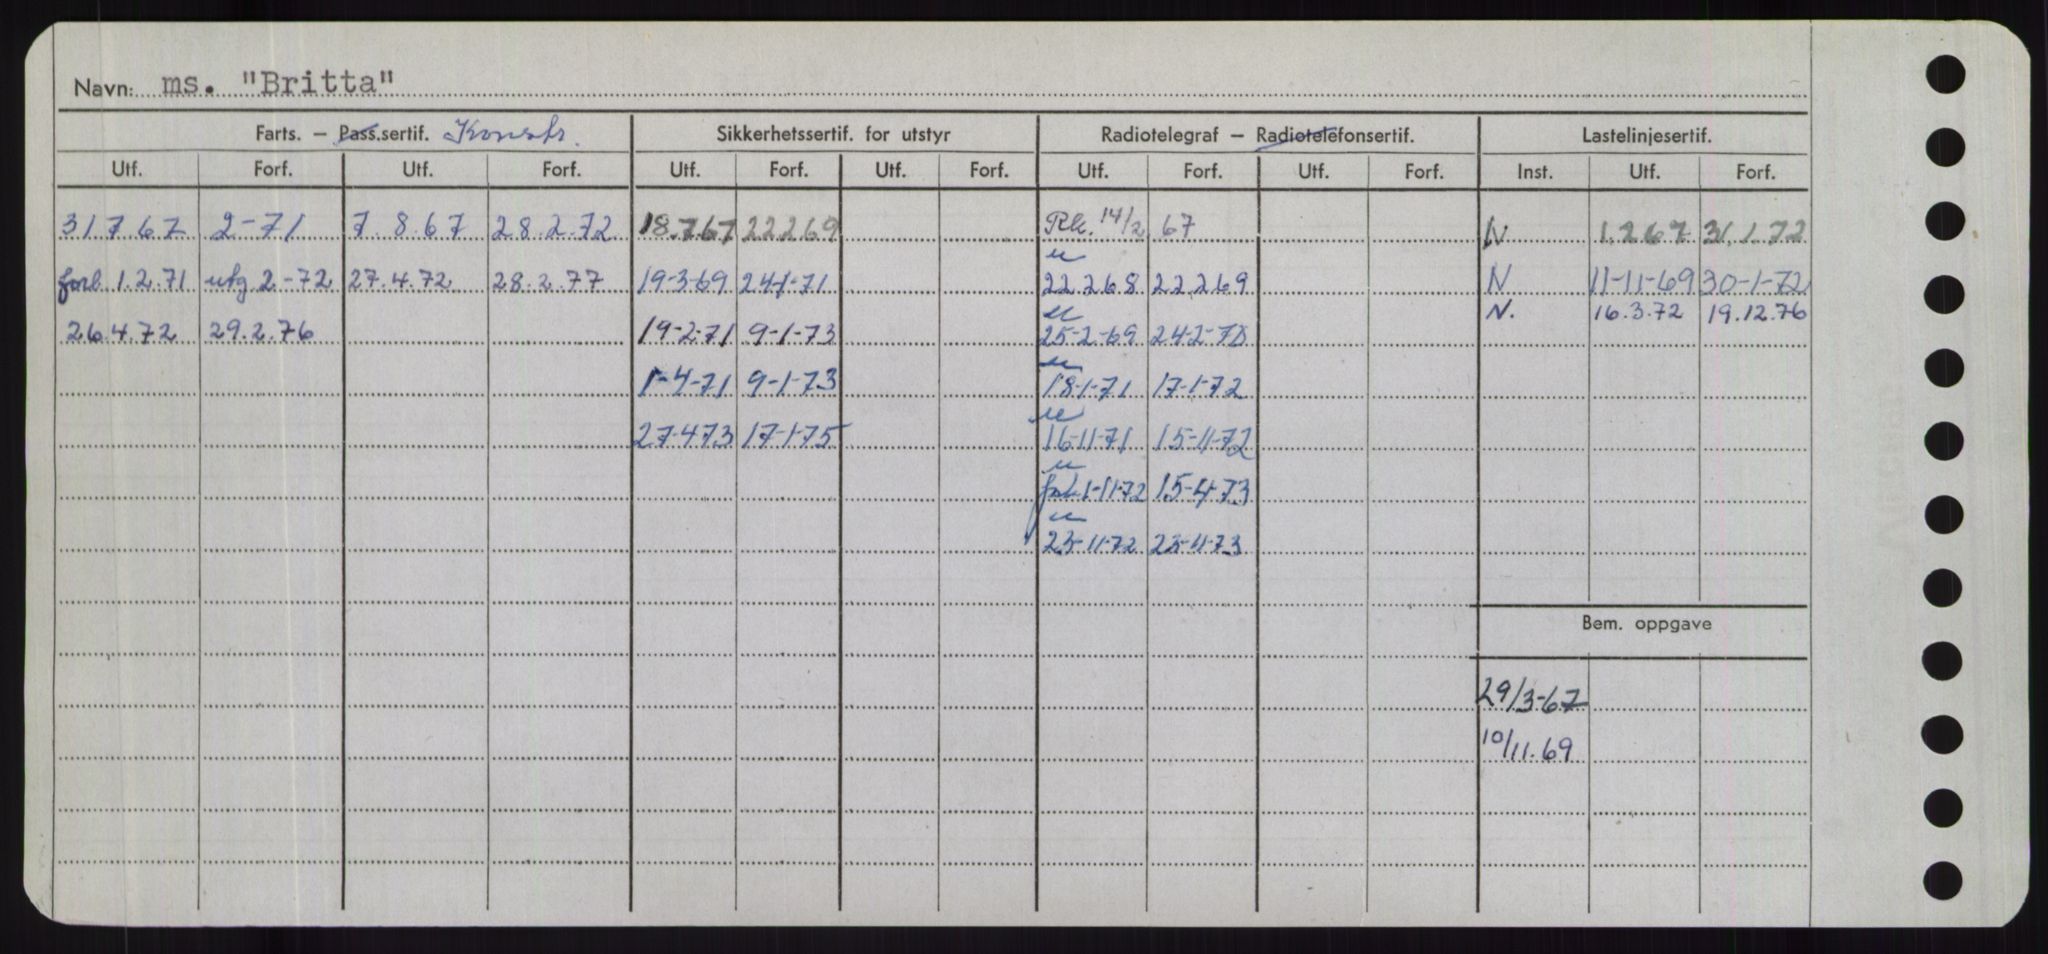 Navn: ms. "Britta"
Farts. — Pass.sertif. Konstr. Sikkerhetssertif. for utstyr Radiotelegraf — Radiotelefonsertif. Lastelinjesertif.
Utf. Forf. Utf. Forf. Utf. Forf. Utf. Forf. Utf. Forf. Utf. Forf. Inst. Utf. Forf.
31.7.67 2-71 7.8.67 28.2.72 18.7.67 22.2.69 14/2 67 N 1.2.67 31.1.72
forl. 1.2.71 utg 2-72 27.4.72 28.2.77 19-3-69 24-1-71 22.2.68 22.2.69 N 11-11-69 30-1-72
N. 16.3.72 19.12.76
26.4.72 29.2.76 19-2-71 9-1-73 25-2-69 24-2-70
1-4-71 9-1-73 18-1-71 17-1-72
27-4-73 17-1-75 16-11-71 15-11-72
1-11-72 15-4-73
23-11-72 23-11-73
Bem. oppgave
29/3-67
10/11.69